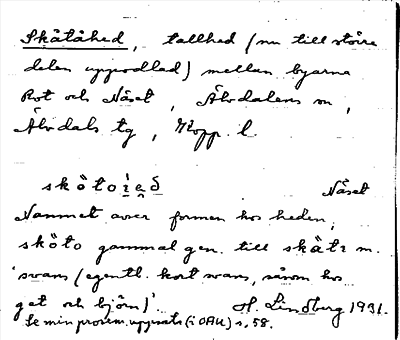 Skåtåhed, tallhed (nu till större
delen uppodlad) mellan byarna
Rot och Näset, Älvdalens sn,
Älvdals tg, Kopp. l.
skötoı̯ẹð Näset
Namnet avser formen hos heden;
sköto gammal gen. till skätı m.
'svans (egentl. kort svans, såsom hos
get och björn)'. H. Lindberg 1931.
Se min prosem.uppsats (i OAU) s. 58.